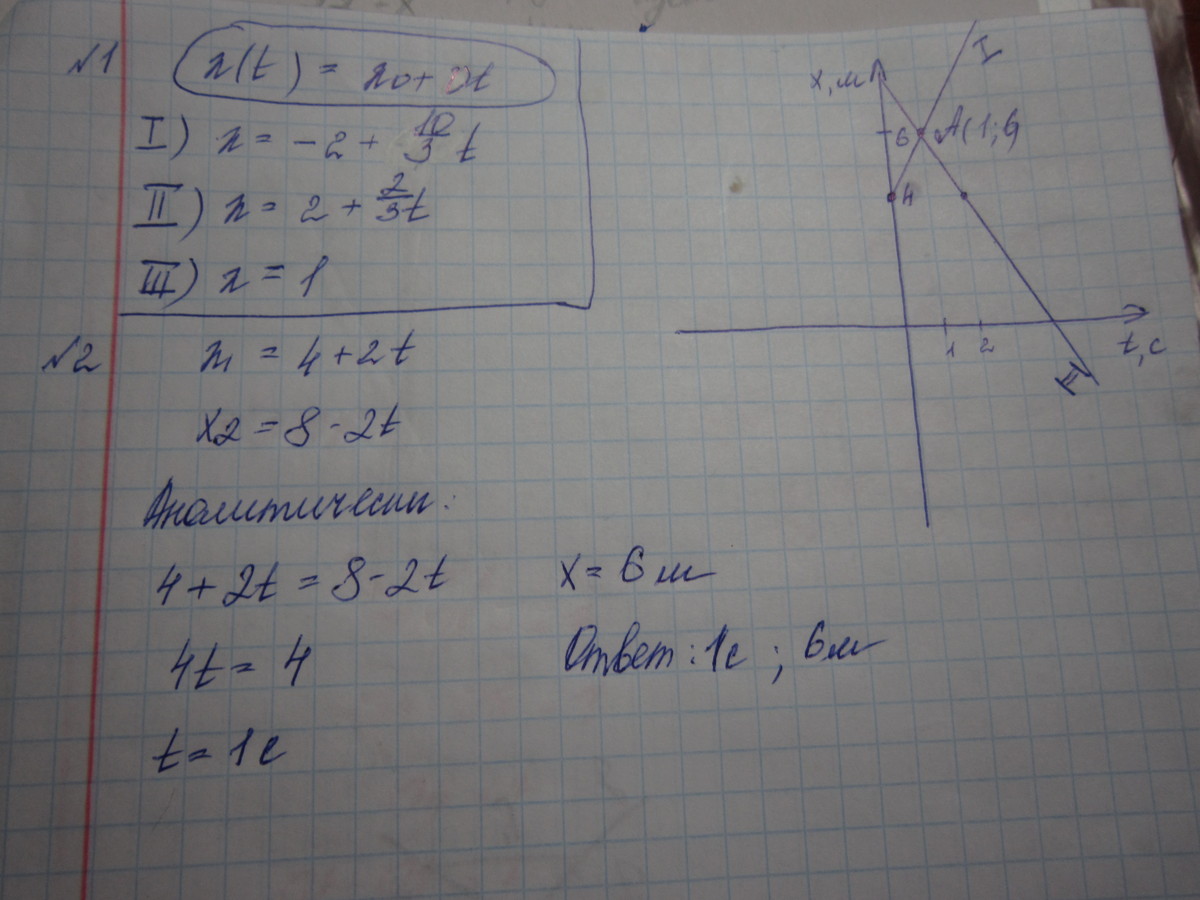 №1 x(t) = x0 + υt
I) x = -2 + 10/3 t
II) x = 2 + 2/3 t
III) x = 1
№2 x1 = 4 + 2t
x2 = 8 - 2t
Аналитически:
4 + 2t = 8 - 2t
4t = 4
t = 1c
x = 6м
Ответ: 1c ; 6м
x, м
I
6 A(1; 6)
4
1 2
t, c
II